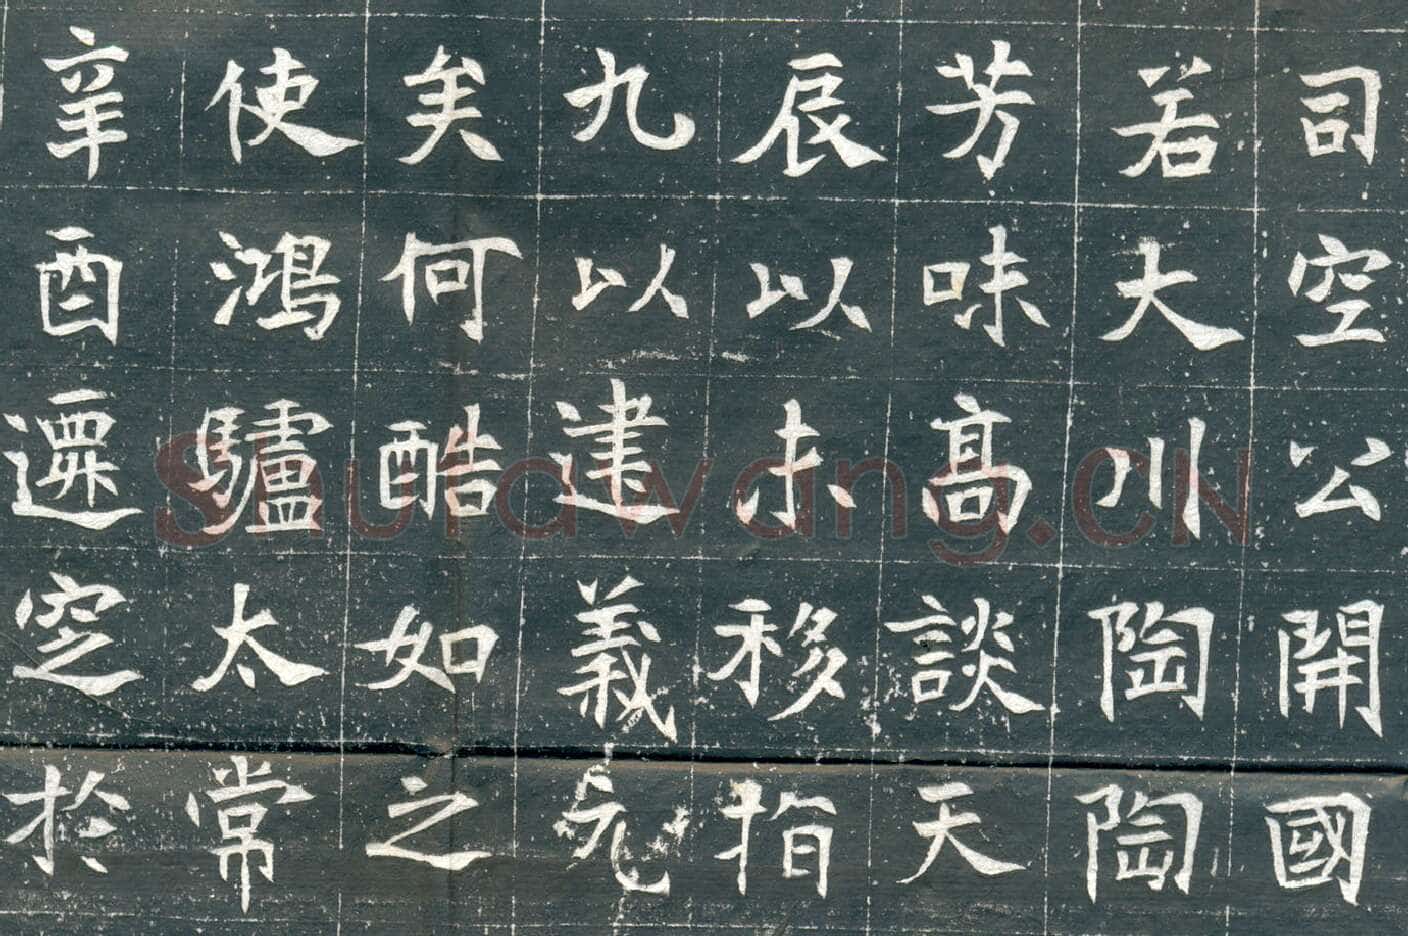 司空公開國
若大川陶陶
芳味高談天
辰以未移指
九以建義元
矣何酷如之
使鴻驢太常
辛酉遷空於
Shufawang.CN